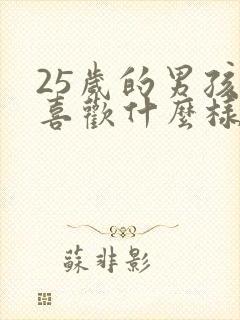 25歲的男孩
喜歡什麼樣
蘇非影